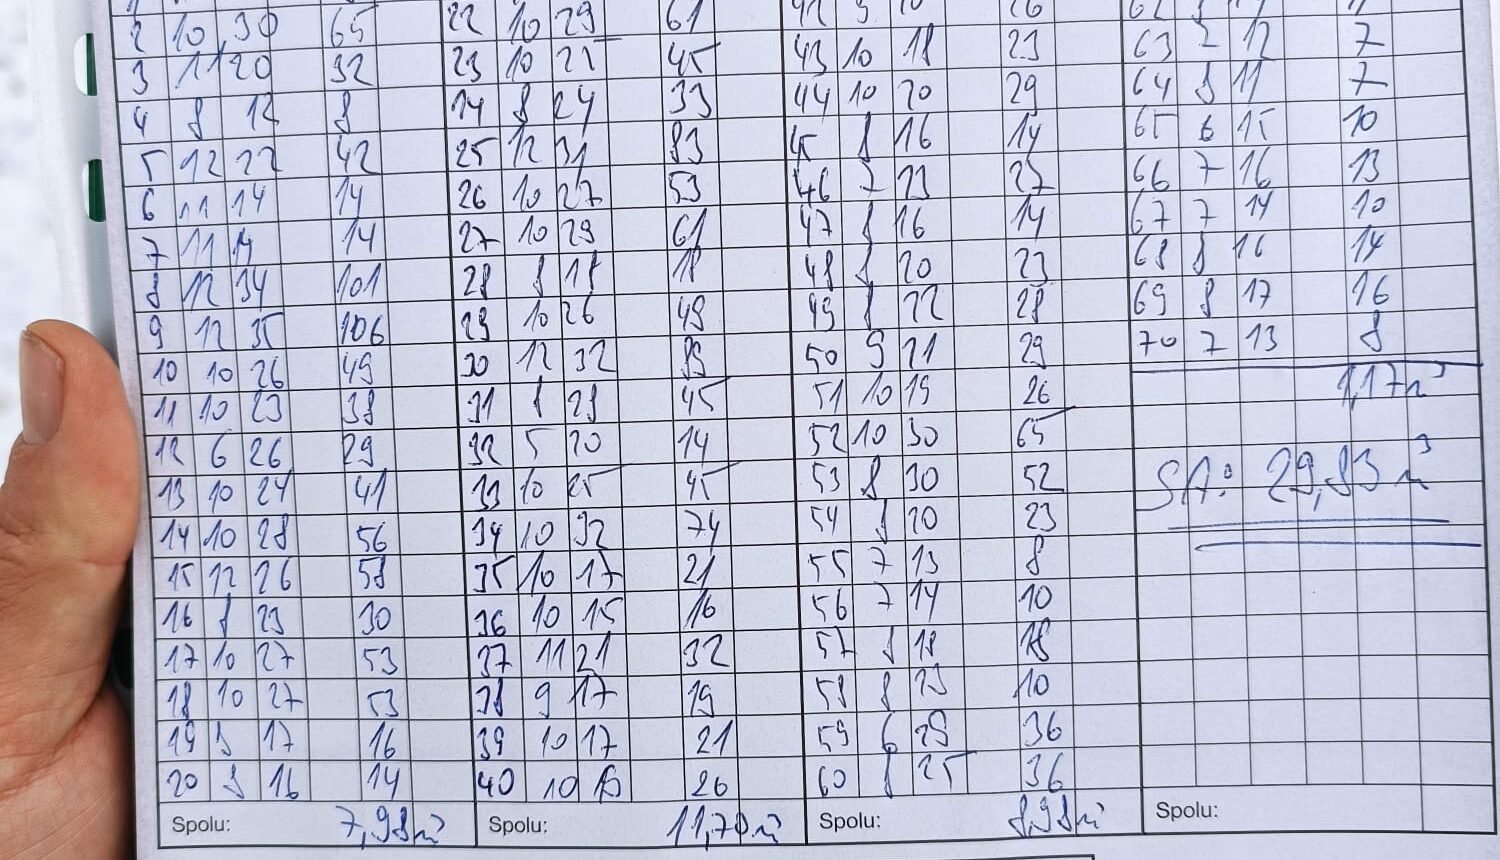 2 10 30 65 22 10 29 61
3 11 20 32 23 10 25 45 43 10 18 23 63 7 12 7
4 8 12 8 24 8 24 33 44 10 20 29 64 8 11 7
5 12 22 42 25 12 31 83 45 8 16 14 65 6 15 10
6 11 14 14 26 10 27 53 46 7 23 27 66 7 16 13
7 11 14 14 27 10 29 61 47 8 16 14 67 7 14 10
8 12 34 101 28 8 18 18 48 8 20 23 68 8 16 14
9 12 35 106 29 10 26 49 49 8 22 28 69 8 17 16
10 10 26 49 30 12 32 89 50 9 21 29 70 7 13 8
11 10 23 38 31 8 28 45 51 10 19 26 1,17m³
12 6 26 29 32 5 20 14 52 10 30 65
13 10 24 41 33 10 25 45 53 8 30 52 SA: 29,83 m³
14 10 28 56 34 10 32 74 54 8 20 23
15 12 26 58 35 10 17 21 55 7 13 8
16 8 23 30 36 10 15 16 56 7 14 10
17 10 27 53 37 11 21 32 57 8 18 18
18 10 27 53 38 9 17 19 58 8 10
19 17 16 39 10 17 21 59 6 29 36
20 8 16 14 40 10 26 60 8 25 36
Spolu: 7,98m³ Spolu: 11,70m³ Spolu: 8,98m³ Spolu: